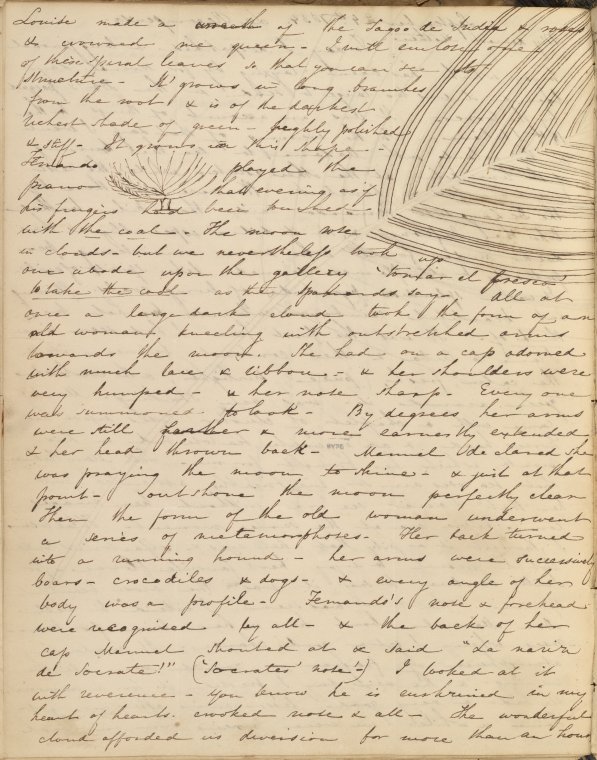 Louise made a wreath of the Sagoo de India & roses
& crowned me queen - I will enclose one
of these spiral leaves so that you can see its
structure - It grows in long branches
from the root & is of the darkest
richest shade of green - highly polished
& stiff - It grows in this shape -
Fernando played the
piano that evening, as if
his fingers had been touched
with the coal - The moon rose
in clouds - but we nevertheless took up
our abode upon the gallery "tomar el fresco"
to take the cool as the Spaniards say - All at
once a large dark cloud took the form of an
old woman kneeling with outstretched arms
towards the moon. She had on a cap adorned
with much lace & ribbon - & her shoulders were
very humped - & her nose sharp. Every one
was summoned to look - By degrees her arms
were still farther & more earnestly extended
& her head thrown back - Manuel declared she
was praying the moon to shine - & just at that
point - out shone the moon perfectly clear
Then the form of the old woman underwent
a series of metamorphoses - Her back turned
into a running hound - her arms were successively
boars - crocodiles & dogs - & every angle of her
body was a profile - Fernando's nose & forehead
were recognised by all - & the back of her
cap Manuel shouted at & said "La nariz
de Socrate!" ("Socrates' nose"-) I looked at it
with reverence - you know he is enshrined in my
heart of hearts - crooked nose & all - The wonderful
cloud afforded us diversion for more than an hour